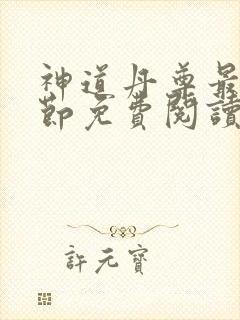 神道丹尊最
節免費閱讀
許元寶